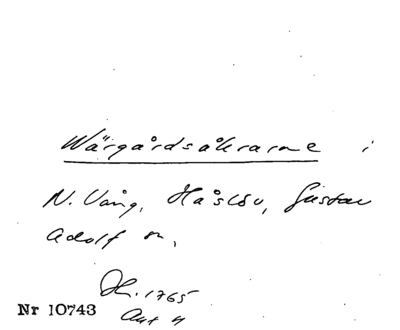 Wärgårdsåkrarne i
N. Vång, Håslöv, Gustav
Adolf sn,
Dl. 1765
Nr 10743